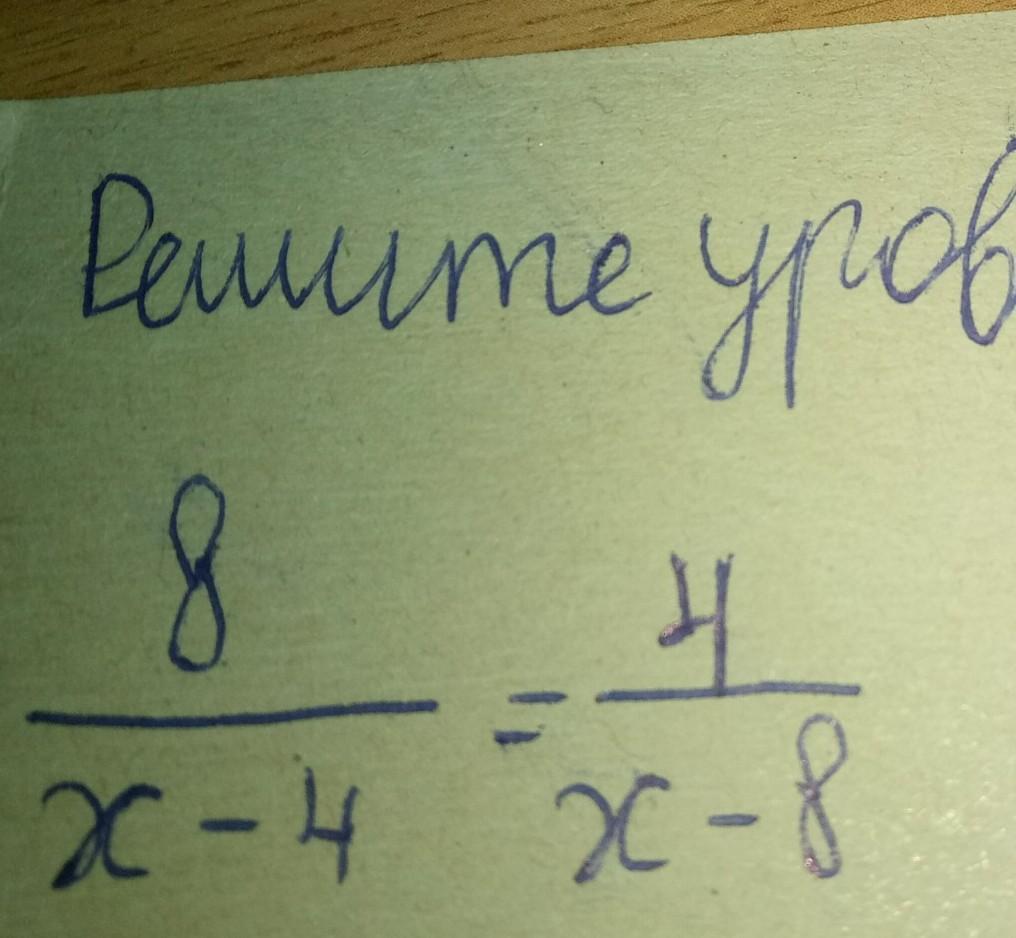 Решите уров
8/(x - 4) = 4/(x - 8)